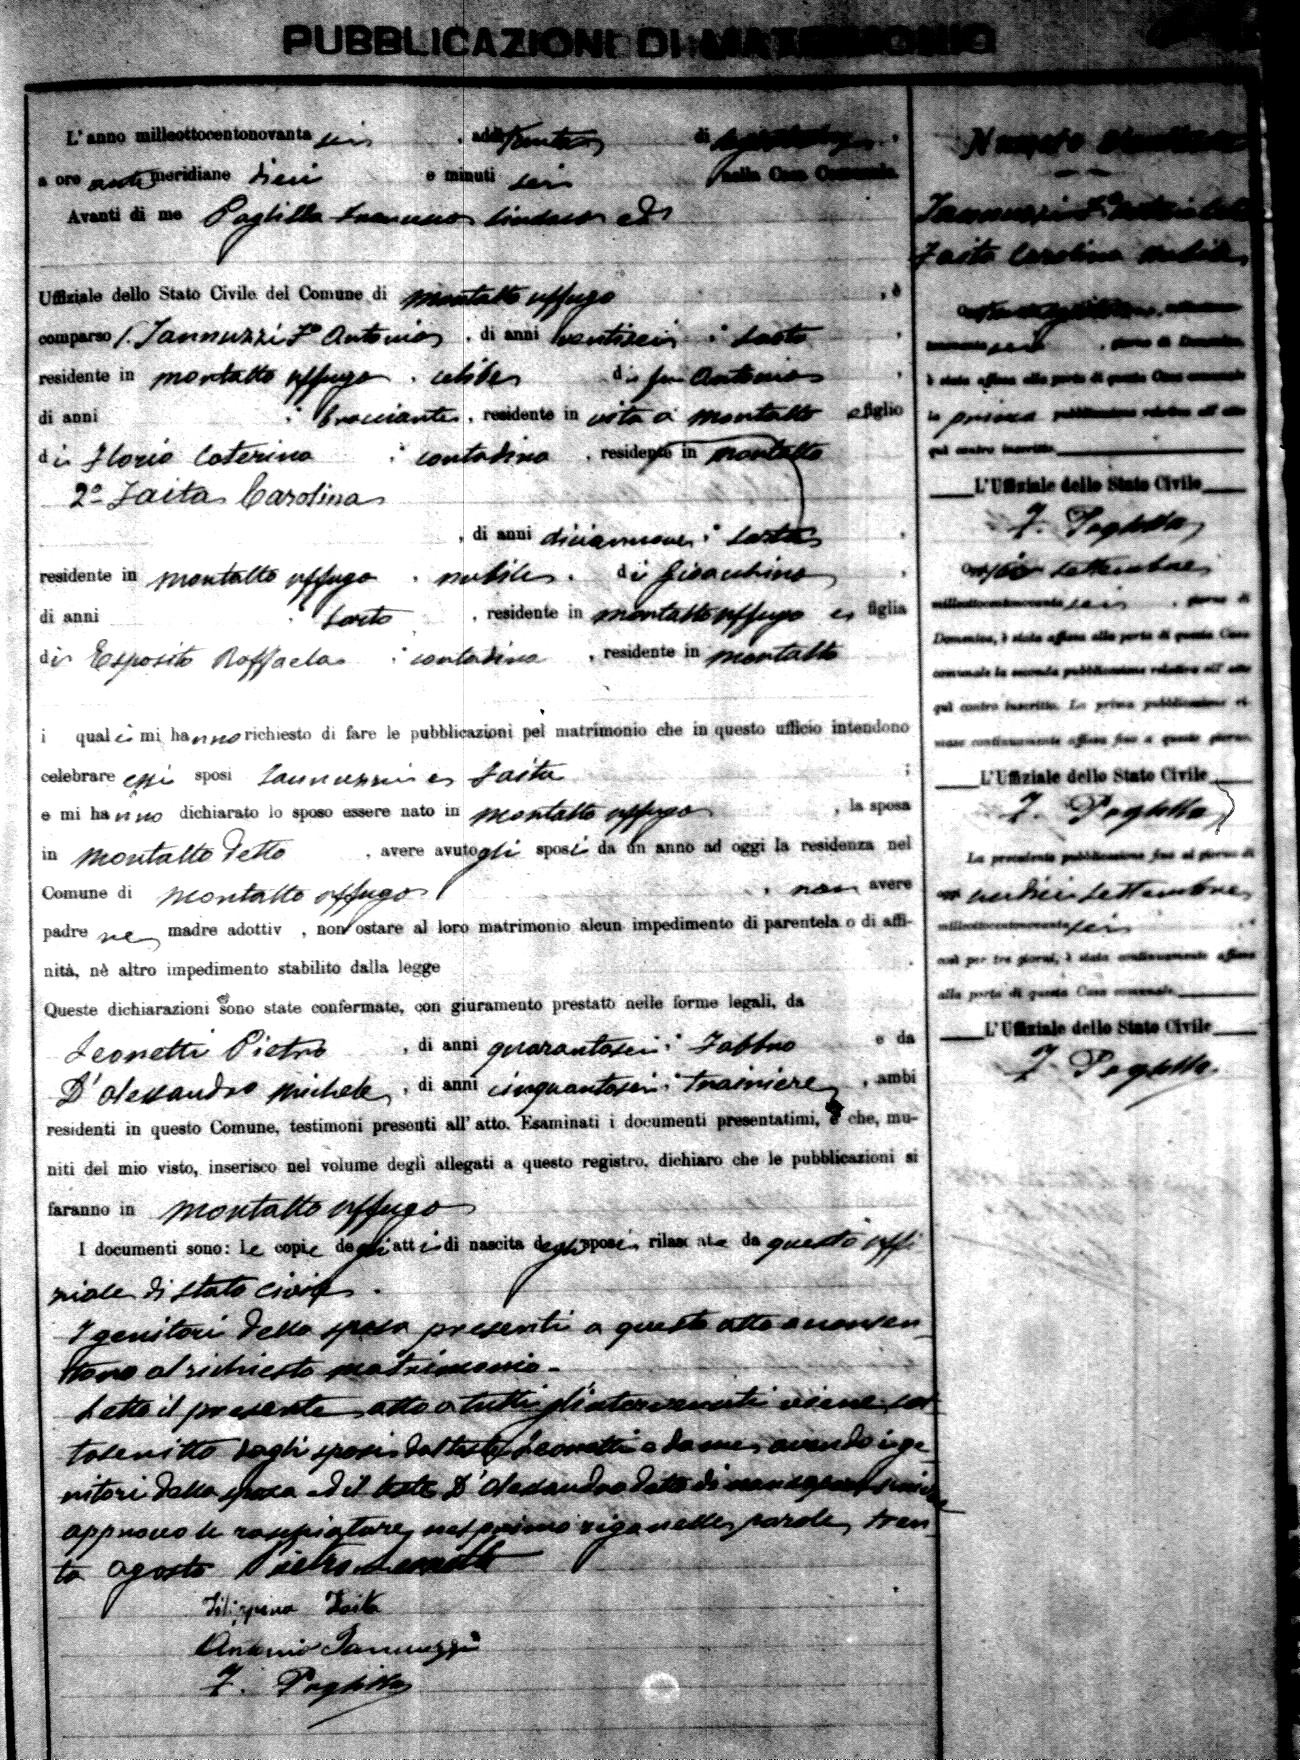 PUBBLICAZIONI DI MATRIMONIO
L'anno milleottocentonovanta sei , addì trenta di
a ore anti meridiane dieci e minuti sei nella Casa Comunale.
Avanti di me Paglilla Francesco Sindaco ed
Uffiziale dello Stato Civile del Comune di Montalto Uffugo , è
comparso 1. Iannuzzi Fo Antonio , di anni ventisei ; Sarto ,
residente in Montalto Uffugo , celibe di fu Antonio ,
di anni ; bracciante , residente in vita a Montalto e figlio
di Florio Caterina ; contadina , residente in Montalto
2o Zaita Carolina
, di anni diciannove ; Sarta ,
residente in Montalto Uffugo , nubile . di Gioacchino ,
di anni ; Sarto , residente in Montalto Uffugo e figlia
di Esposito Raffaela ; contadina , residente in Montalto
i quali mi hanno richiesto di fare le pubblicazioni pel matrimonio che in questo ufficio intendono
celebrare essi sposi Iannuzzi e Zaita ;
e mi hanno dichiarato lo sposo essere nato in Montalto Uffugo , la sposa
in Montalto detto , avere avuto gli sposi da un anno ad oggi la residenza nel
Comune di Montalto Uffugo , non avere
padre ne madre adottiv , non ostare al loro matrimonio alcun impedimento di parentela o di affi-
nità, nè altro impedimento stabilito dalla legge .
Queste dichiarazioni sono state confermate, con giuramento prestato nelle forme legali, da
Leonetti Pietro , di anni quarantasei ; Fabbro e da
D'Alessandro Michele , di anni cinquantasei ; trainiere , ambi
residenti in questo Comune, testimoni presenti all' atto. Esaminati i documenti presentatimi, e che, mu-
niti del mio visto, inserisco nel volume degli allegati a questo registro, dichiaro che le pubblicazioni si
faranno in Montalto Uffugo
I documenti sono: le copie degli atti di nascita degli sposi rilasciate da questo uffi
ziale di stato civile .
I genitori della sposa presenti a questo atto acconsen
tono al richiesto matrimonio -
Letto il presente atto a tutti gl'intervenuti viene sot
toscritto dagli sposi dal teste Leonetti e da me, avendo i ge
nitori della sposa ed il teste D'Alessandro detto di non saper
approvo le raspiature nel primo rigo nelle parole tren
ta agosto Pietro Leonetti
Filippina Zaita
Antonio Iannuzzi
F. Paglilla
Numero
Iannuzzi Fo Antonio celibe
Zaita Carolina nubile
sei , giorno di Domenica,
è stata affissa alla porta di questa Casa comunale
la prima pubblicazione relativa all' atto
qui contro inscritto.
L'Uffiziale dello Stato Civile
F. Paglilla
Settembre
milleottocentonovanta sei , giorno di
Domenica, è stata affissa alla porta di questa Casa
comunale la seconda pubblicazione relativa all' atto
qui contro inscritto. La prima pubblicazione ri-
mase continuamente affissa fino a questo giorno.
L'Uffiziale dello Stato Civile
F. Paglilla
La precedente pubblicazione fino al giorno di
oggi undici Settembre
milleottocentonovanta sei ,
cioè per tre giorni, è stata continuamente affissa
alla porta di questa Casa comunale.
L'Uffiziale dello Stato Civile
F. Paglilla